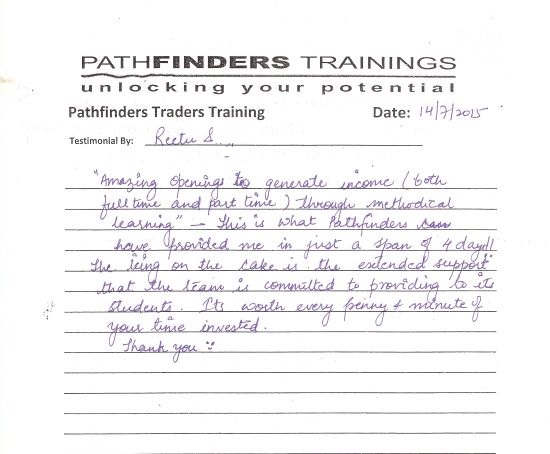 PATHFINDERS TRAININGS
unlocking your potential
Pathfinders Traders Training Date: 14/7/2015
Testimonial By: Reetu S.
"Amazing Openings to generate income (both
full time and part time) through methodical
learning" – This is what Pathfinders
have provided me in just a span of 4 days!!
The icing on the cake is the extended support
that the team is committed to providing to its
students. It's worth every penny & minute of
your time invested.
Thank you :)